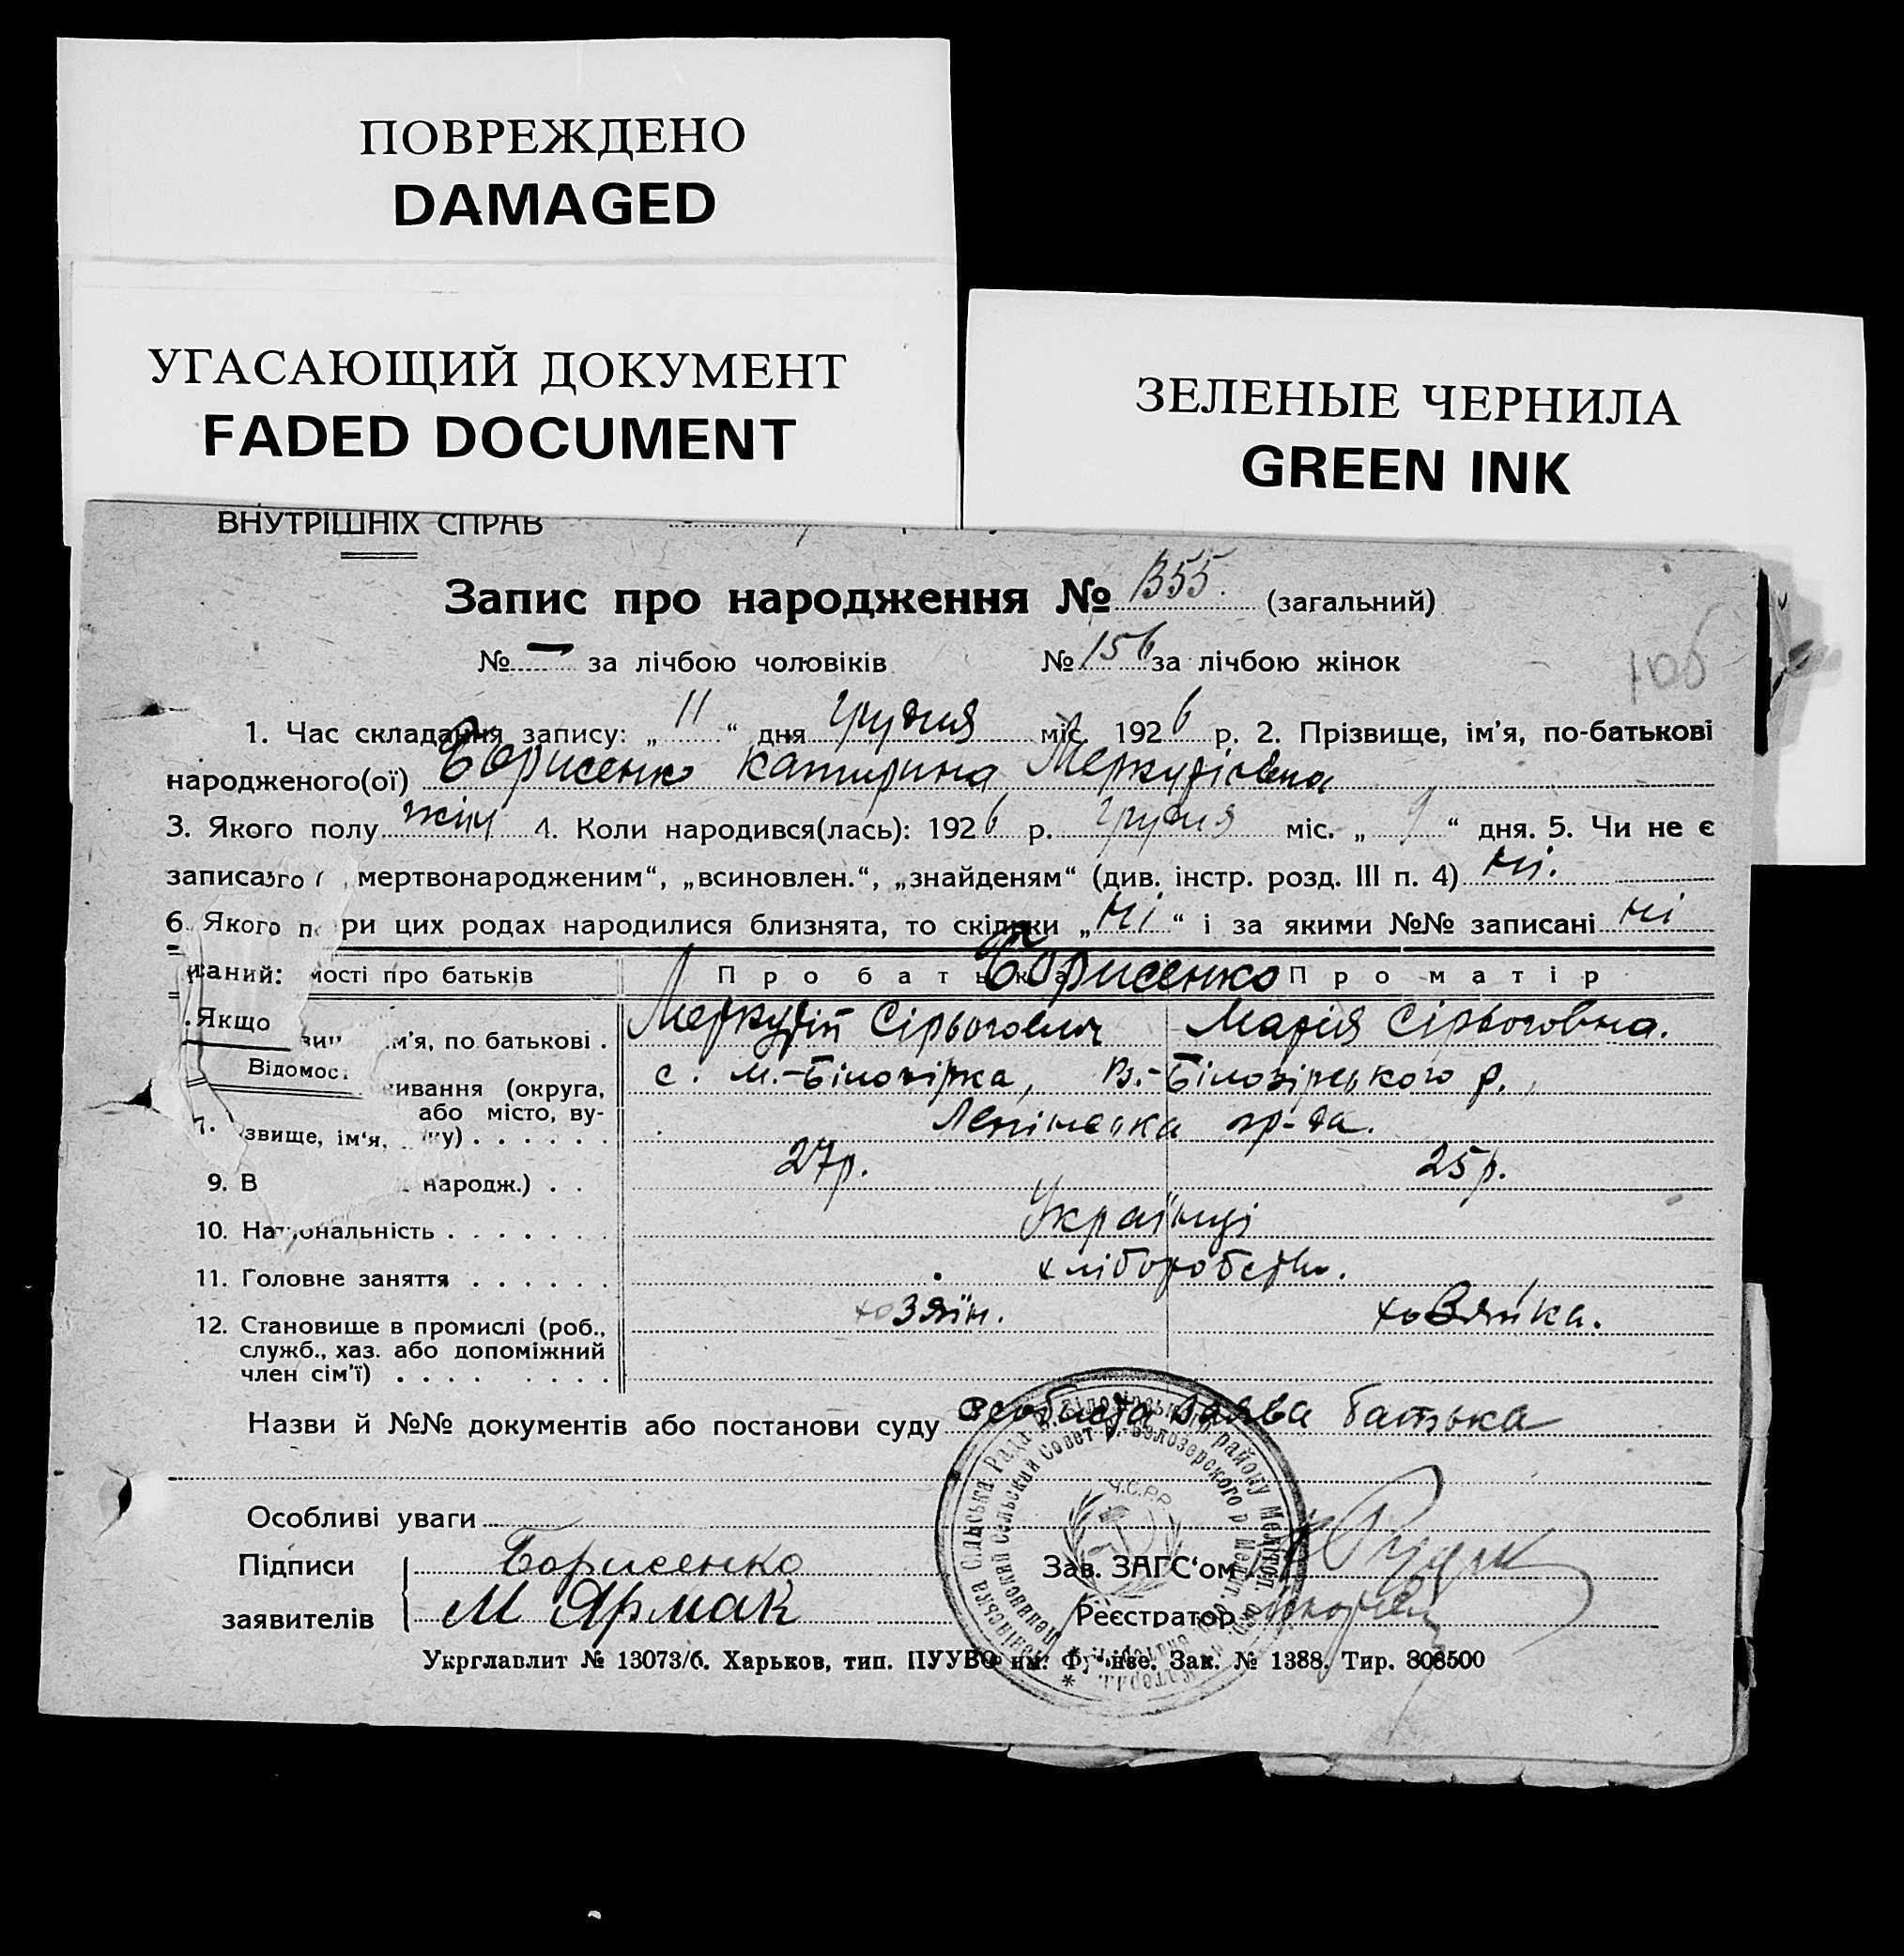 ПОВРЕЖДЕНО
DAMAGED
УГАСАЮЩИЙ ДОКУМЕНТ
FADED DOCUMENT
ЗЕЛЕНЫЕ ЧЕРНИЛА
GREEN INK
ВНУТРІШНІХ СПРАВ
Запис про народження № 355. (загальний)
№ — за лічбою чоловіків № 156 за лічбою жінок
106
1. Час складання запису: „ 11 “ дня грудня міс. 1926 р. 2. Прізвище, ім’я, по-батькові
народженого(ої) Борисенко Катирина Меркуріовна
3. Якого полу жін 4. Коли народився(лась): 1926 р. грудня міс. „ 9 “ дня. 5. Чи не є
мертвонародженим“, „всиновлен.“, „знайденям“ (див. інстр. розд. III п. 4) ні.
6. Якого ри цих родах народилися близнята, то скільки „ ні “ і за якими №№ записані ні
саний: мості про батьків Про батька Борисенко Про матір
Якщо м’я, по батькові . Меркурій Сірьогович Марія Сірьоговна.
Відомос кивання (округа, с. М.-Білозірка, В.-Білозірського р.,
або місто, ву-
7. звище, ім’я, ку) . . . . . . гр-да.
9. В народж.) . . 27р. 25р.
10. Національність . . . . . . . Українці
11. Головне заняття . . . . . . хліборобств.
12. Становище в промислі (роб., хозяїн. хозяйка.
служб., хаз. або допоміжний
член сім’ї) . . . . . . . .
Назви й №№ документів або постанови суду особиста заява батька
Особливі уваги
Підписи Борисенко Зав. ЗАГС‘ом
заявителів М Ярмак Реєстратор
У.С.Р.Р.
Укрглавлит № 13073/б. Харьков, тип. ПУУВО им. Фрунзе. Зак. № 1388. Тир. 808500